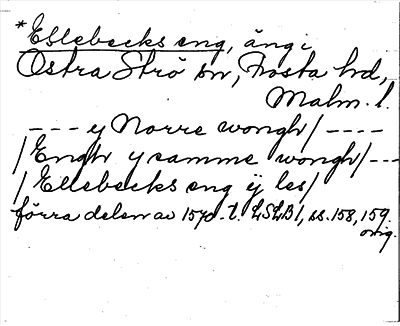 *Ellebecks eng, äng i
Östra Strö sn, Frosta hd,
Malm. l.
--- y Norre wongh/----
/Engh y samme wongh/---
/Ellebecks eng ÿ les/
förra delen av 1570-t. LSLB1, ss. 158, 159.
orig.